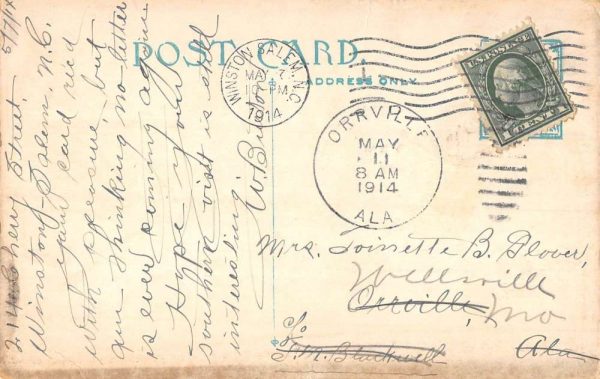 POST CARD
ADDRESS ONLY
WINSTON SALEM, N.C.
MAY 7
1914
U.S. POSTAGE
ORRVILLE
MAY
11
8 AM
1914
ALA
214 Cherry Street
Winston-Salem, N.C.
5/7/14
Your card recd
with pleasure, but
am thinking no letter
is ever coming again
Hope your
southern visit is still
interesting
Mrs. Toinette B. Glover,
Wellsville
Orrville,
Mo
c/o
T. M. Blackwell
Ala